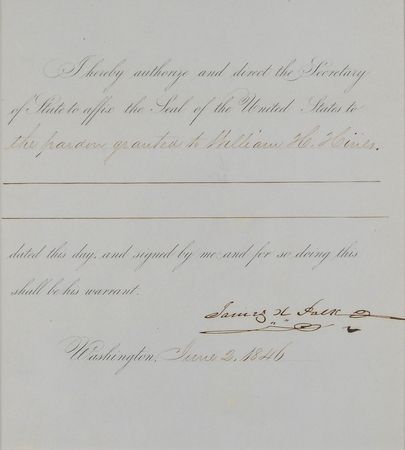 I hereby authorize and direct the Secretary
of State to affix the Seal of the United States to
the pardon granted to William H. Hines.
dated this day, and signed by me and for so doing this
shall be his warrant.
James K Polk
Washington, June 2. 1846